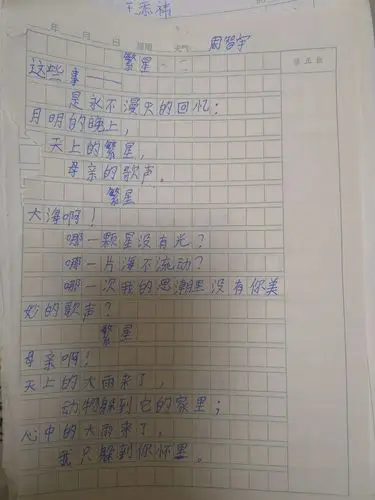 年 月 日 星期 天气
繁星·一二
这些事——
是永不漫灭的回忆:
月明的晚上,
天上的繁星,
母亲的歌声。
繁星
大海啊!
哪一颗星没有光?
哪一片海不流动?
哪一次我的思潮里没有你美
妙的歌声?
繁星
母亲啊!
天上的大雨来了,
动物躲到它的家里;
心中的大雨来了,
我只躲到你怀里。